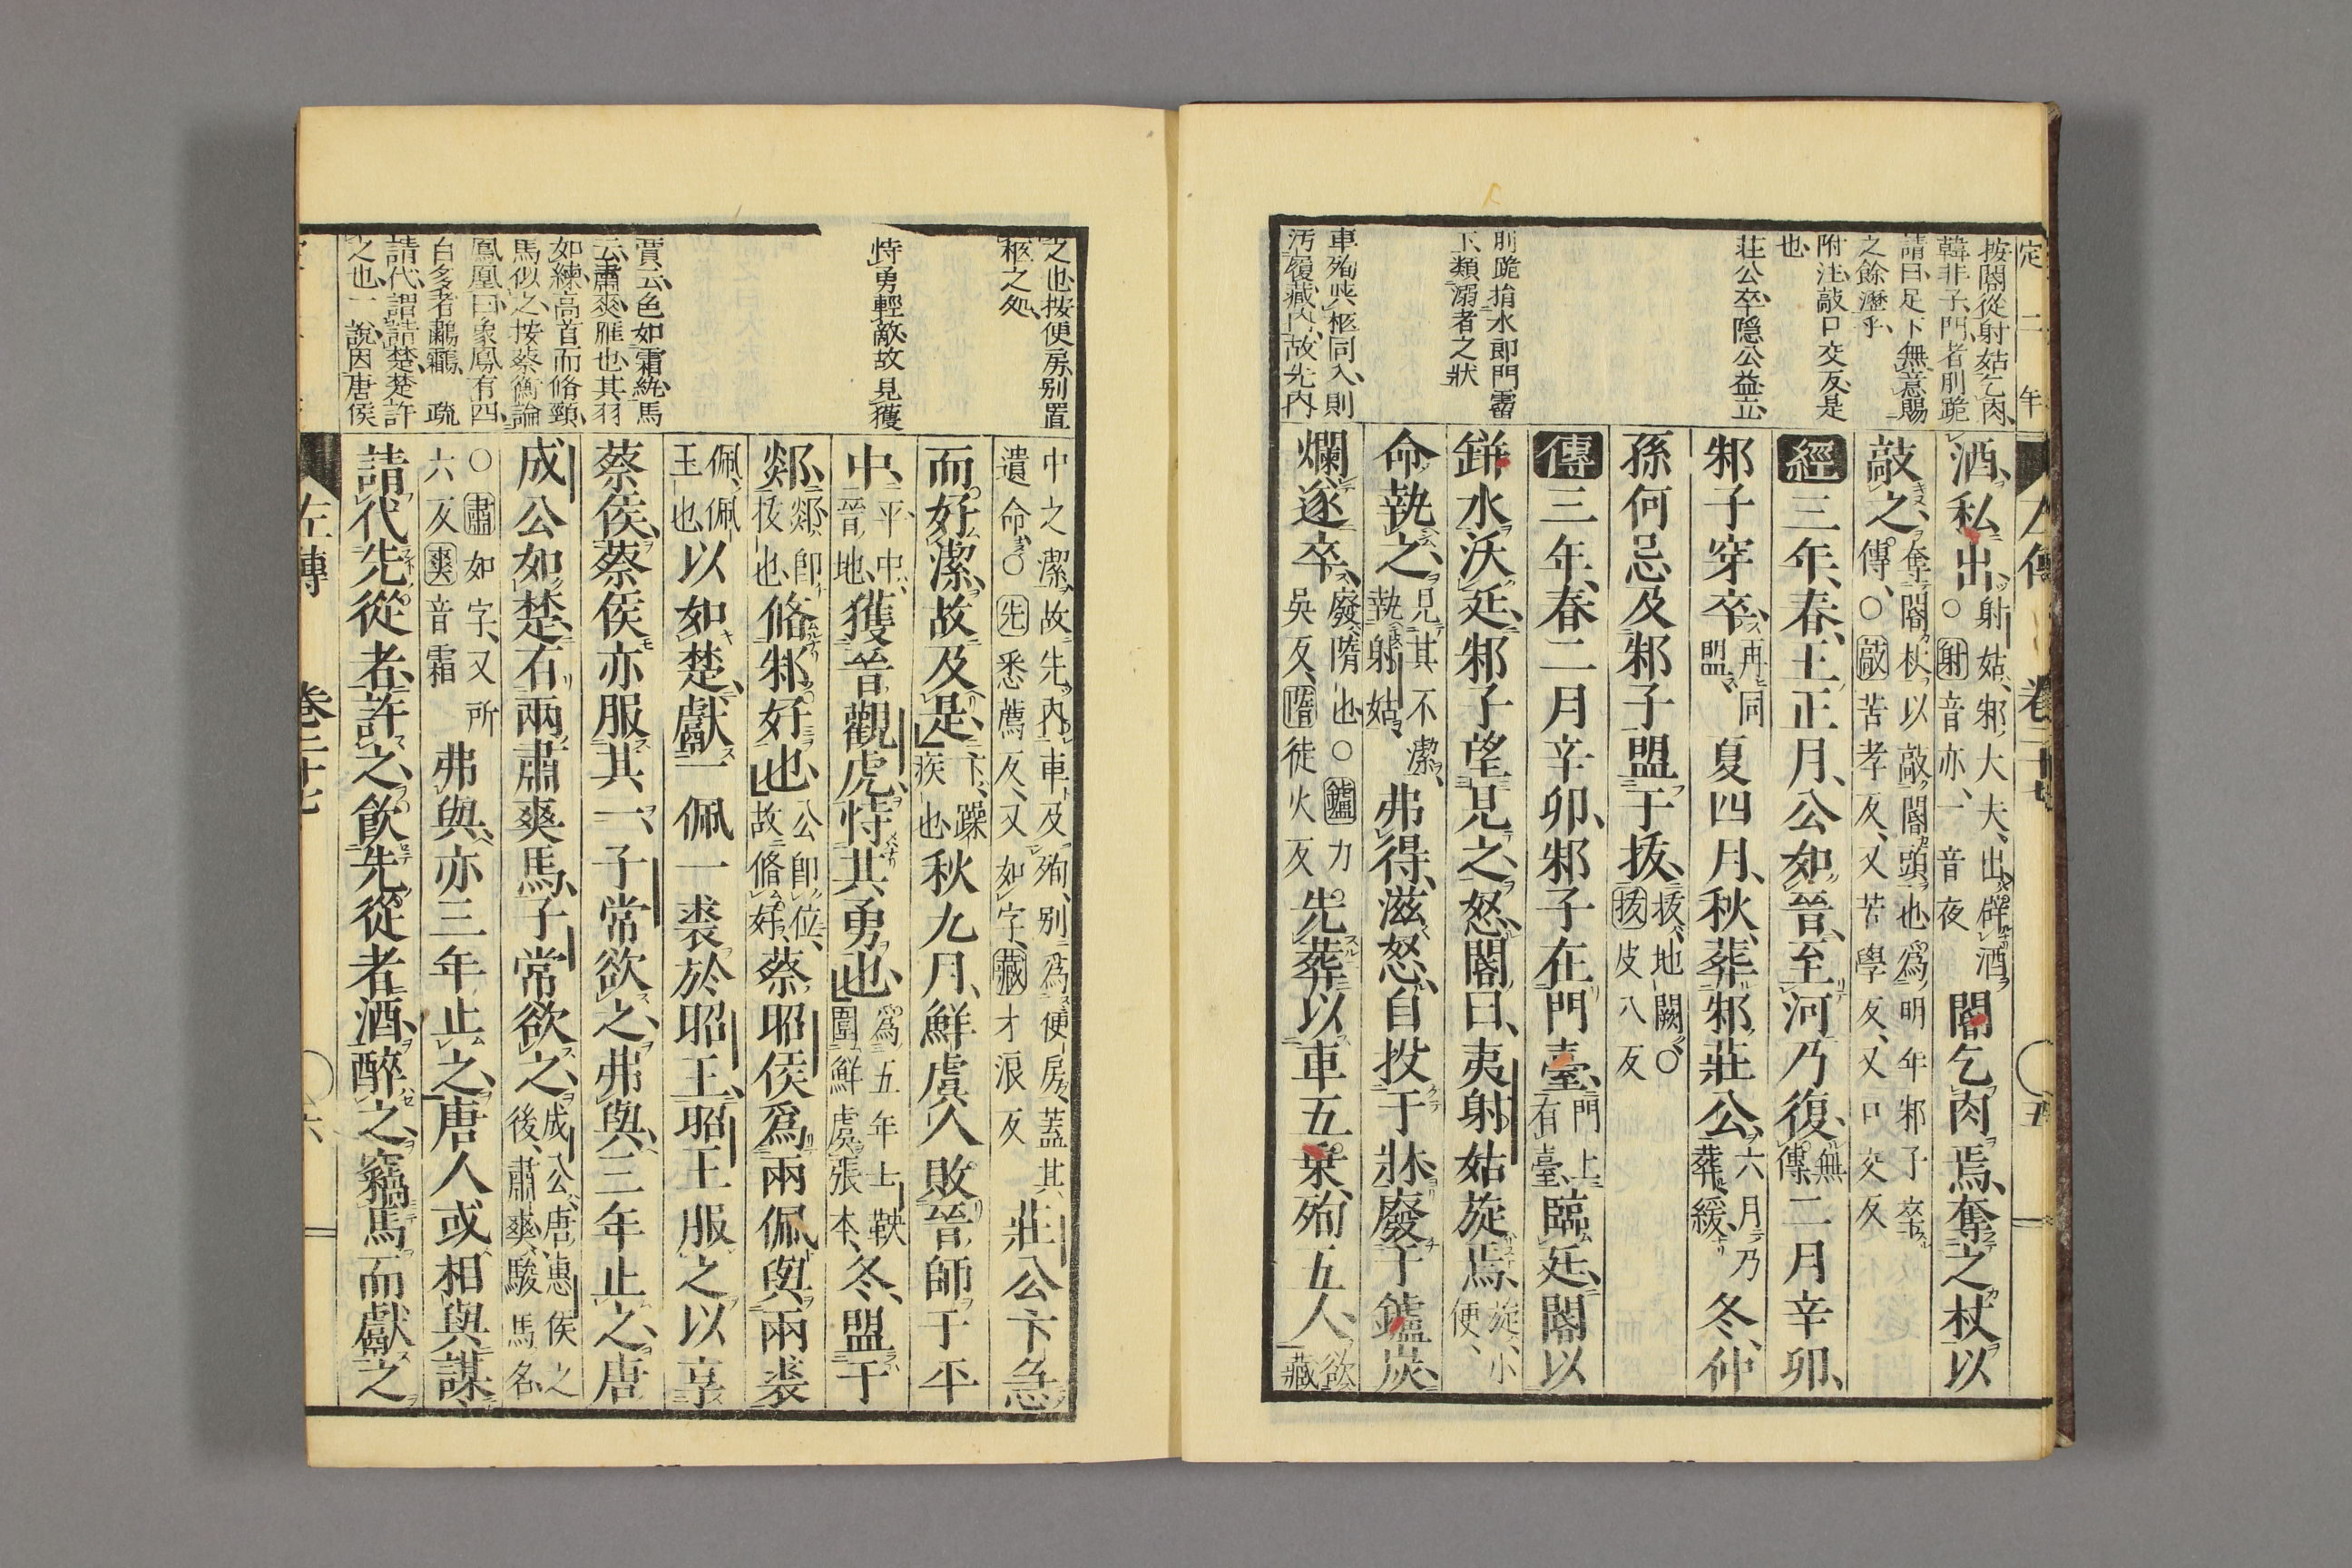 定二年
左傳 卷二十七 五
按閽從射姑乞肉、
韓非子、門者刖跪
請曰、足下無意賜
之餘瀝乎、
附注、敲口交反、是
也
莊公卒、隱公益立、
刖跪捐水郎門霤
下、類溺者之狀
車殉、與柩同入、則
汚履藏內、故先內
酒、私出、射姑、邾大夫、出辟酒、○射音亦、一音夜 閽乞肉焉、奪之杖以
敲之、奪閽杖、以敲閽頭也、爲明年邾子卒傳、○敲苦孝反、又苦學反、又口交反
經三年、春、王正月、公如晉、至河乃復、無傳 二月辛卯、
邾子穿卒、再同盟、夏四月、秋、葬邾莊公、六月乃葬、緩、冬、仲
孫何忌及邾子盟于拔、拔、地闕、○拔皮八反
傳三年、春二月辛卯、邾子在門臺、門上有臺、臨廷、閽以
缾水沃廷、邾子望見之、怒、閽曰、夷射姑旋焉、旋、小便、
命執之、見其不潔、執射姑、弗得、滋怒、自投于牀、廢于鑪炭、
爛、遂卒、廢、隋也、○鑪力吳反、隋徒火反 先葬以車五乘、殉五人、欲藏
之也、按便房、別置
柩之処、
恃勇輕敵、故見獲
賈云、色如霜紈、馬
云、肅爽、雁也、其羽
如練、高首而脩頸、
馬似之、按蔡衡論
鳳凰曰、象鳳有四、
白多者鷫鸘、疏
請代、謂請楚、楚許
之也、一說、因唐侯
中之潔、故先內車及殉、別爲便房、蓋其遺命、○先悉薦反、又如字、藏才浪反 莊公卞急
而好潔、故及是、卞、躁疾也 秋九月、鮮虞人敗晉師于平
中、平中、晉地、獲晉觀虎、恃其勇也、爲五年士鞅圍鮮虞張本、冬、盟于
郯、郯、卽拔也、脩邾好也、公卽位、故脩好、蔡昭侯爲兩佩與兩裘
佩、佩玉也、以如楚、獻一佩一裘於昭王、昭王服之、以享
蔡侯、蔡侯亦服其一、子常欲之、弗與、三年止之、唐
成公如楚、有兩肅爽馬、子常欲之、成公、唐惠侯之後、肅爽、駿馬名、
○肅如字、又所六反、爽音霜 弗與、亦三年止之、唐人或相與謀、
請代先從者、許之、飮先從者酒、醉之、竊馬而獻之
左傳 卷二十七 六